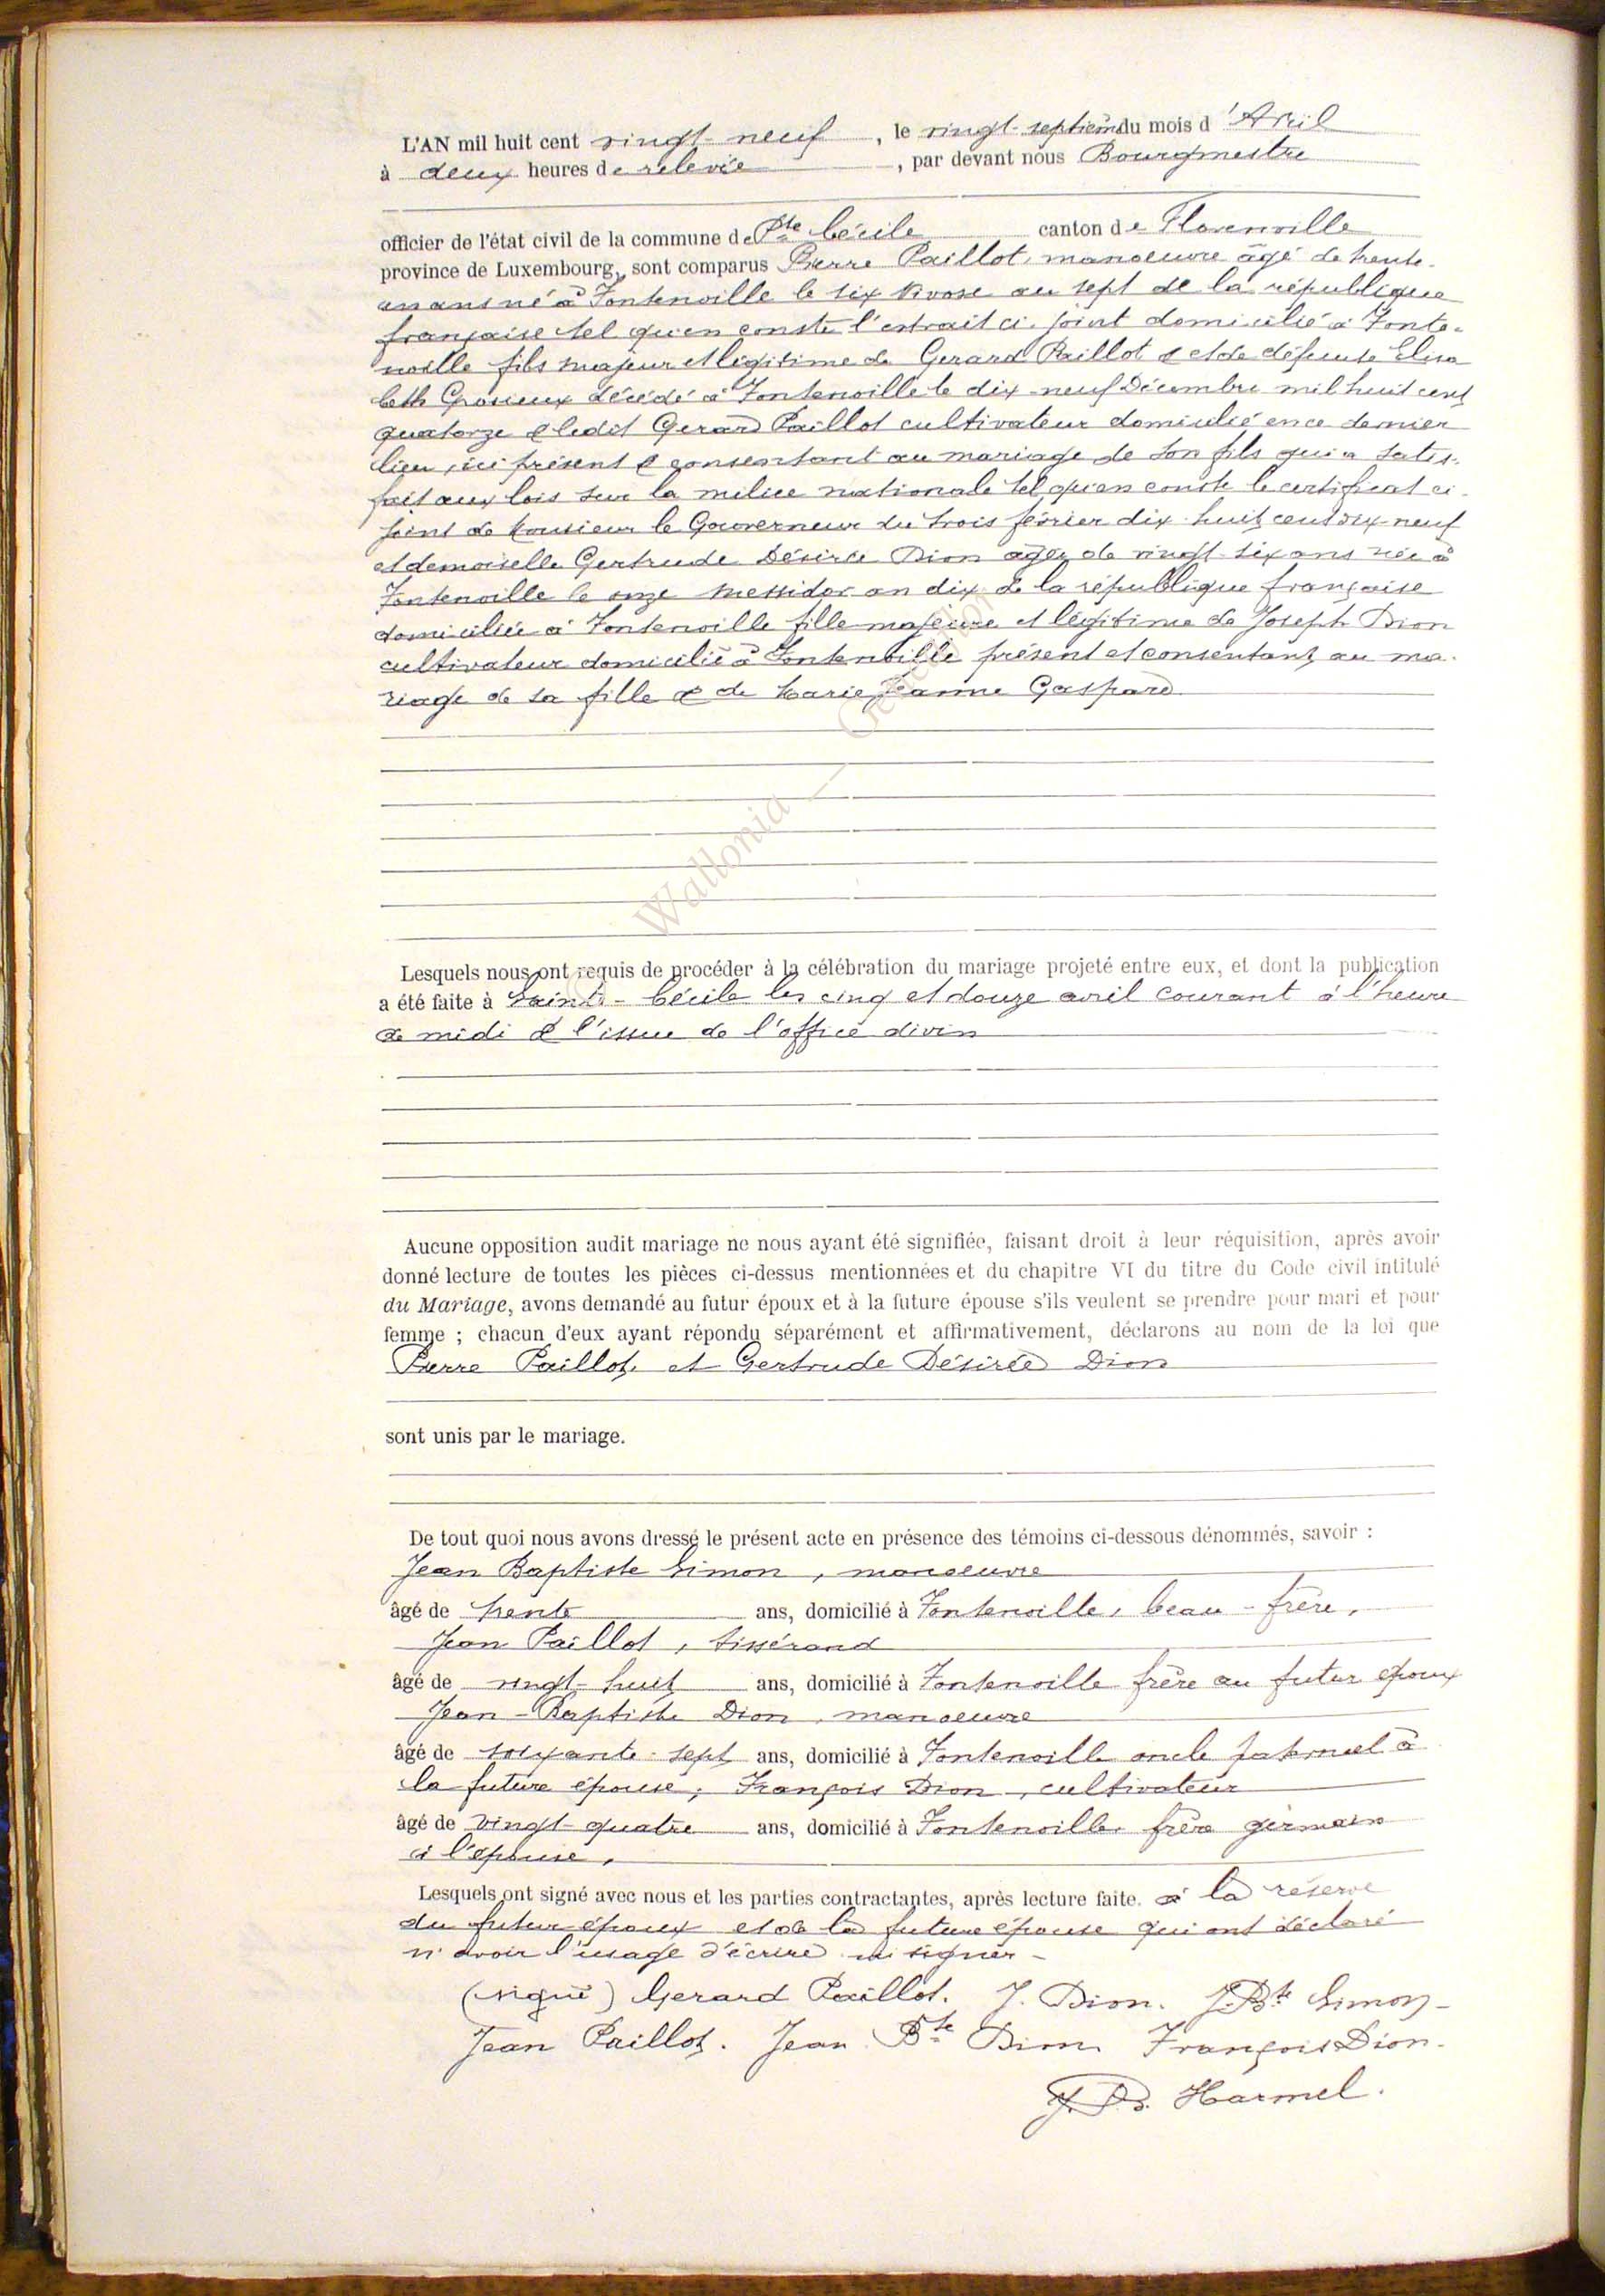 L'AN mil huit cent vingt-neuf, le vingt-septième du mois d'Avril
à deux heures de relevée, par devant nous Bourgmestre
officier de l'état civil de la commune de Ste Cécile canton de Florenville
province de Luxembourg, sont comparus Pierre Paillot, manoeuvre âgé de trente-
un ans né à Fontenoille le six Nivose an sept de la république
française tel qu'en conste l'extrait ci-joint domicilié à Fonte-
noille fils majeur et légitime de Gerard Paillot & et de défunte Elisa
beth décédé à Fontenoille le dix-neuf Décembre mil huit cent
quatorze & ledit Gerard Paillot cultivateur domicilié en ce dernier
lieu, ici présent & consentant au mariage de son fils qui a satis-
fait aux lois sur la milice nationale tel qu'en conste le certificat ci-
joint de Monsieur le Gouverneur du trois février dix-huit cent dix-neuf
et demoiselle Gertrude Désirée Dion âgée de vingt-six ans née à
Fontenoille le onze Messidor an dix de la république française
domiciliée à Fontenoille fille majeure et légitime de Joseph Dion
cultivateur domicilié à Fontenoille présent et consentant au ma-
riage de sa fille & de Marie Jeanne Gaspard
Wallonia —
Lesquels nous ont requis de procéder à la célébration du mariage projeté entre eux, et dont la publication
a été faite à Sainte-Cécile les cinq et douze avril courant à l'heure
de midi & l'issue de l'office divin
Aucune opposition audit mariage ne nous ayant été signifiée, faisant droit à leur réquisition, après avoir
donné lecture de toutes les pièces ci-dessus mentionnées et du chapitre VI du titre du Code civil intitulé
du Mariage, avons demandé au futur époux et à la future épouse s'ils veulent se prendre pour mari et pour
femme ; chacun d'eux ayant répondu séparément et affirmativement, déclarons au nom de la loi que
Pierre Paillot et Gertrude Désirée Dion
sont unis par le mariage.
De tout quoi nous avons dressé le présent acte en présence des témoins ci-dessous dénommés, savoir :
Jean Baptiste Simon, manoeuvre
âgé de trente ans, domicilié à Fontenoille, beau-frère,
Jean Paillot, tissérand
âgé de vingt-huit ans, domicilié à Fontenoille frère au futur époux
Jean-Baptiste Dion, manoeuvre
âgé de soixante-sept ans, domicilié à Fontenoille oncle paternel à
la future épouse, François Dion, cultivateur
âgé de vingt-quatre ans, domicilié à Fontenoille, frère germain
à l'épouse,
Lesquels ont signé avec nous et les parties contractantes, après lecture faite. à la réserve
du futur époux et de la future épouse qui ont déclaré
n'avoir l'usage d'écrire ni signer -
(signé) Gerard Paillot. J. Dion. J. Bte Simon -
Jean Paillot. Jean Bte Dion François Dion.
J. B. Harmel.